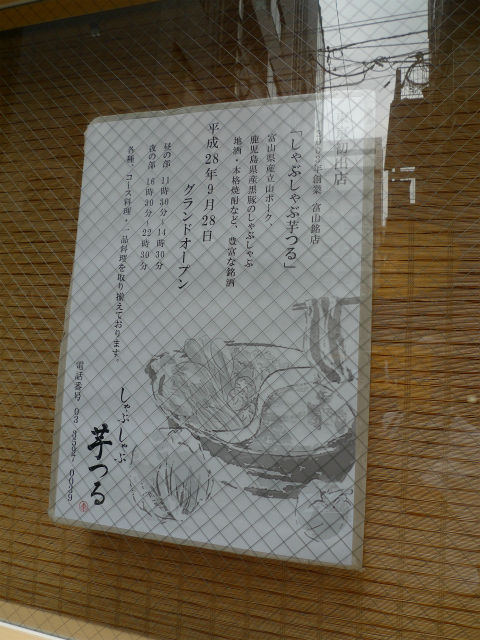 初出店
年創業 富山銘店
「しゃぶしゃぶ芋つる」
富山県産立山ポーク、
鹿児島県産黒豚のしゃぶしゃぶ
地酒・本格焼酎など、豊富な銘酒
平成28年9月28日
グランドオープン
昼の部 11時30分〜14時30分
夜の部 16時30分〜22時30分
各種、コース料理・一品料理を取り揃えております。
しゃぶしゃぶ
芋つる
電話番号 03